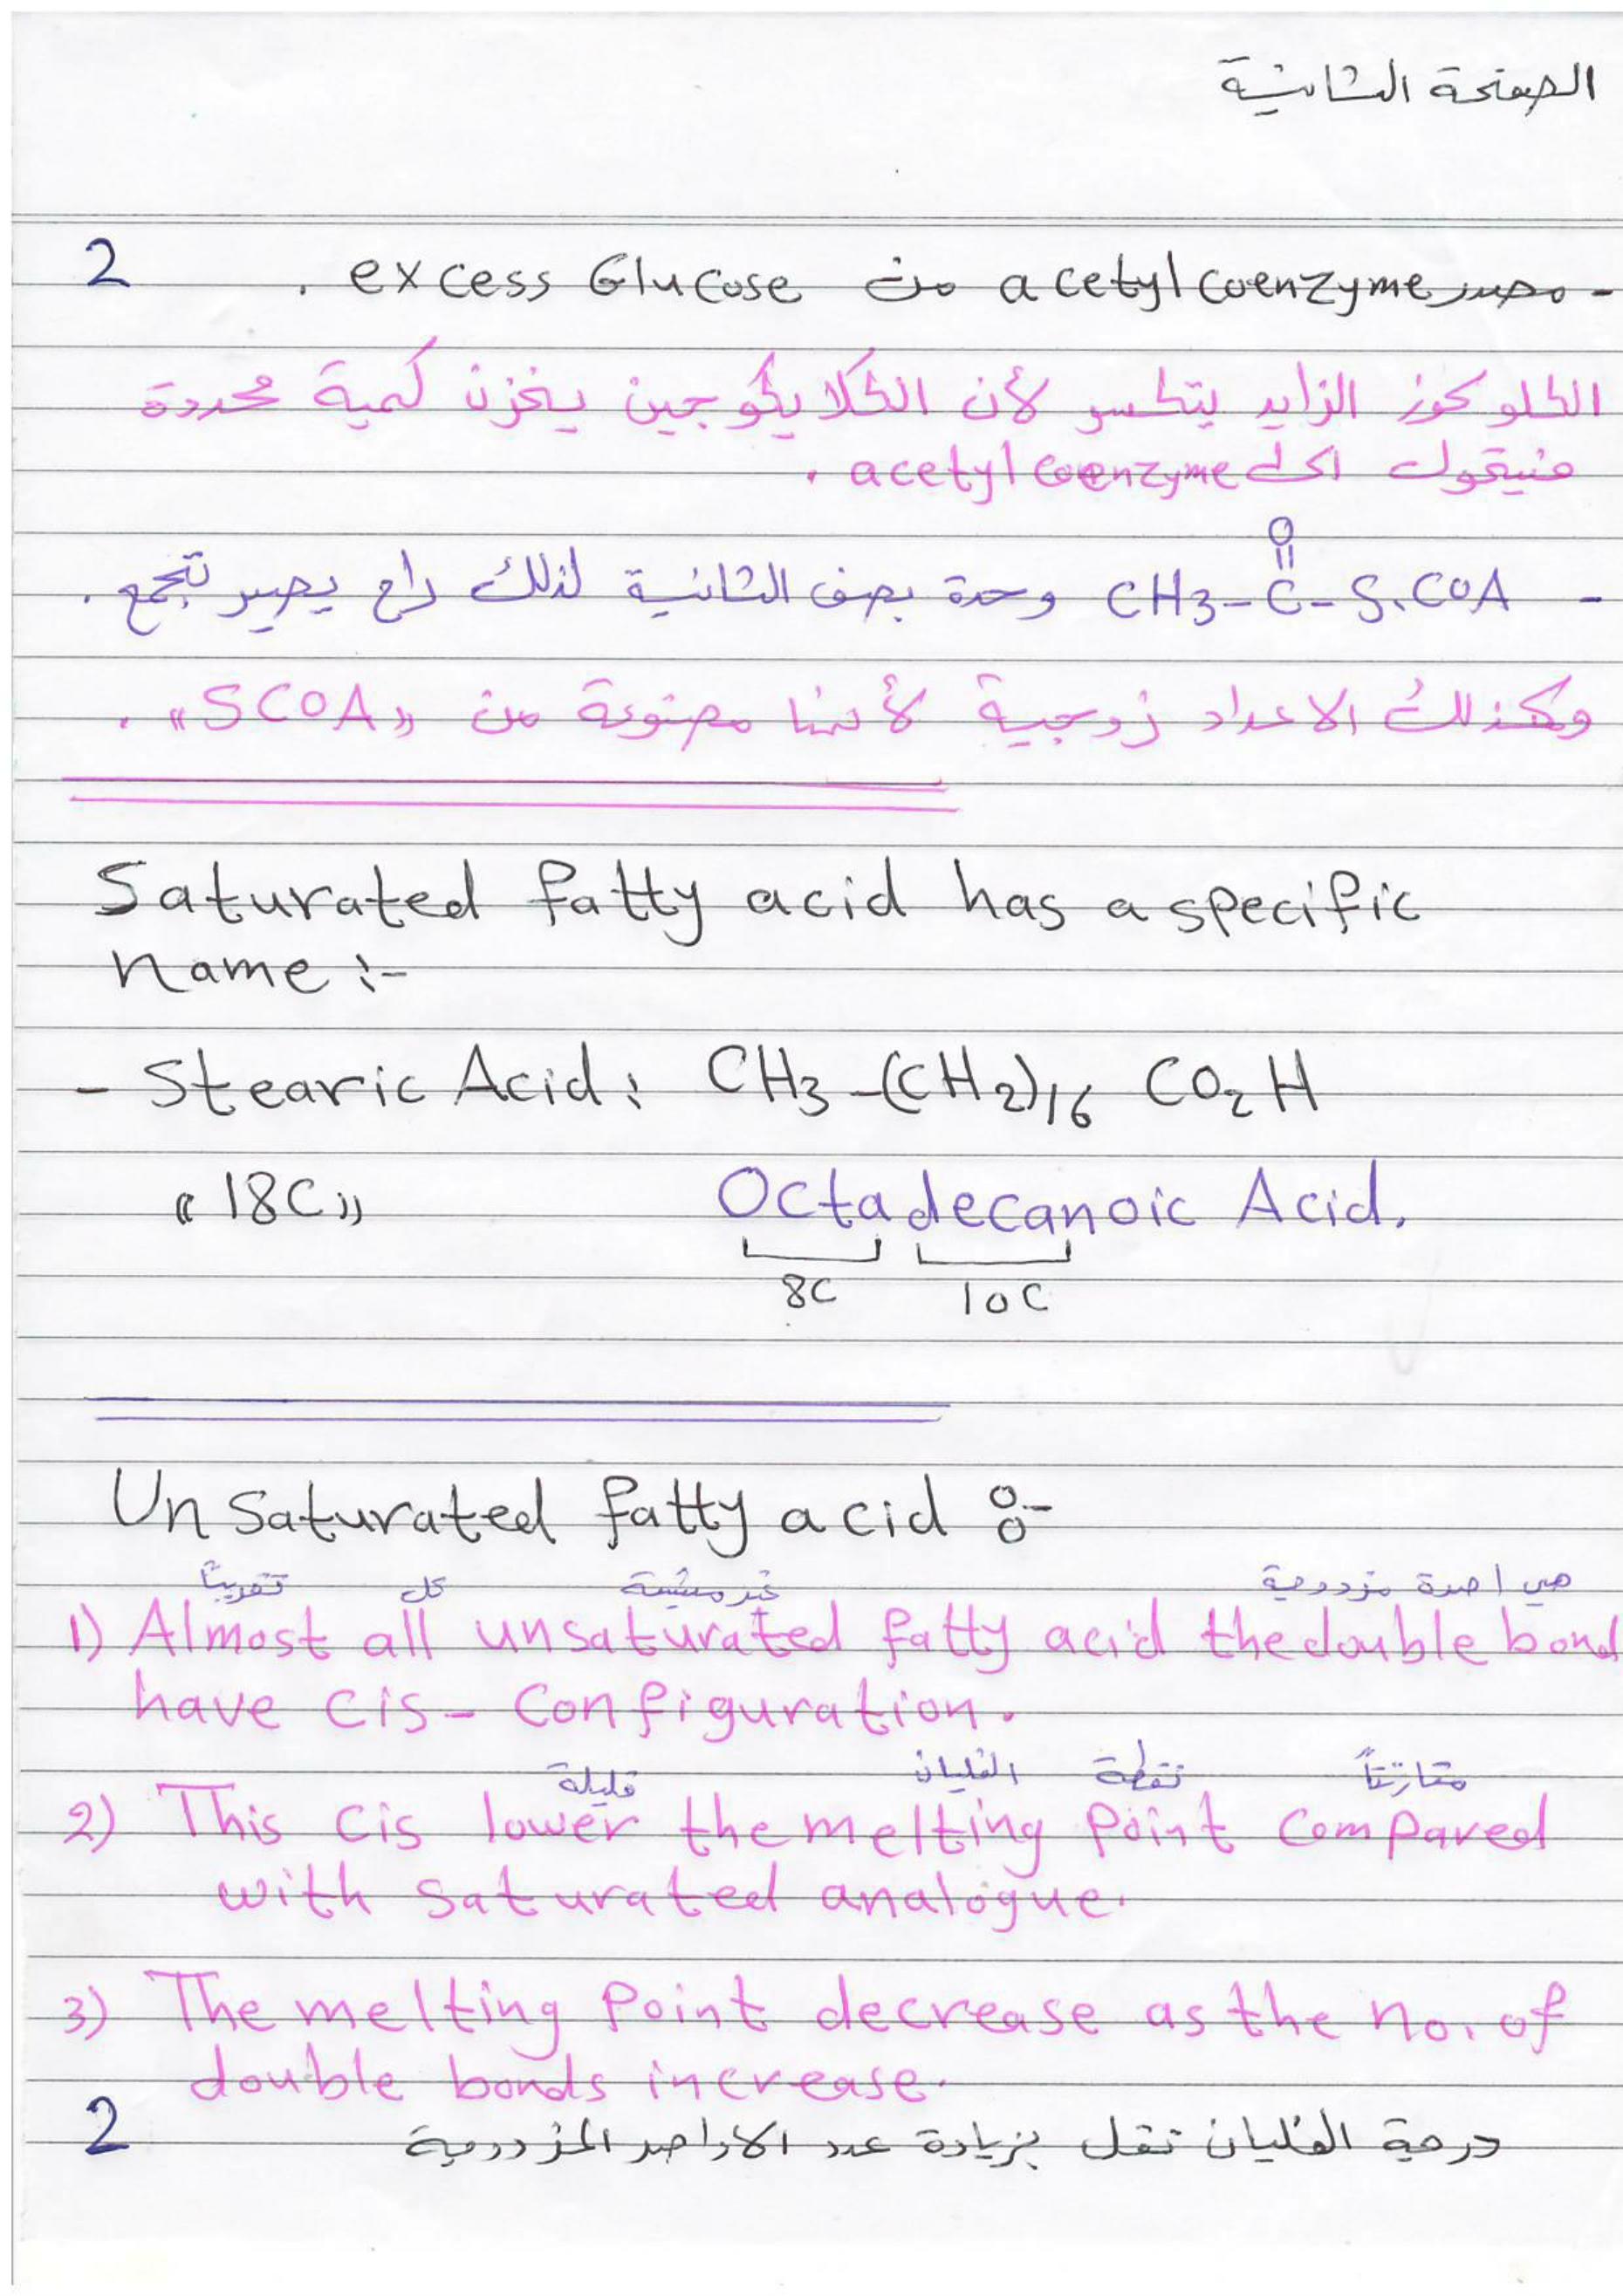 الصفحة الثانية
2
- مصدر acetyl coenzyme من excess Glucose .
الكلوكوز الزايد يتكسر لأن الكلايكوجين يخزن كمية محددة
فيتحول الى acetyl coenzyme .
O
- CH3-C-S.COA وحدة بصف الثانية لذلك راح يصير تجمع .
وكذلك الاعداد زوجية لأنها مصنوعة من «SCOA» .
Saturated fatty acid has a specific
name :-
- Stearic Acid : CH3-(CH2)16 CO2H
«18C» Octadecanoic Acid.
8C 10C
Unsaturated fatty acid :-
تقريباً كل غير مشبعة هي اصرة مزدوجة
1) Almost all unsaturated fatty acid the double bond
have cis - Configuration.
قليلة الغليان نقطة مقارنتاً
2) This cis lower the melting point compared
with saturated analogue.
3) The melting point decrease as the no. of
double bonds increase.
2
درجة الغليان تقل بزيادة عدد الاواصر المزدوجة